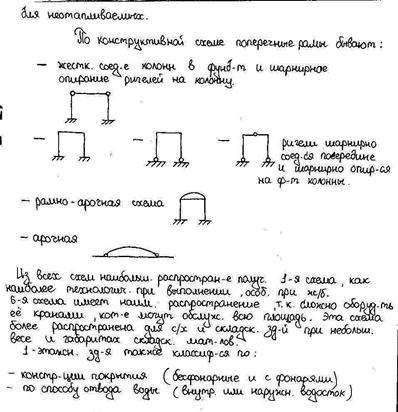 для неотапливаемых.
По конструктивной схеме поперечные рамы бывают:
– жестк. соед-е колонн в фунд-т и шарнирное
опирание ригелей на колонну.
– – – ригели шарнирно
соед-ся посередине
и шарнирно опир-ся
на ф-т колонны.
– рамно-арочная схема
– арочная
Из всех схем наибольш. распростран-е получ. 1-я схема, как
наиболее технологич. при выполнении, особ. при ж/б.
6-я схема имеет наим. распространение, т.к. сложно оборуд-ть
её кранами, кот-е могут обслуж. всю площадь. Эта схема
более распространена для с/х и складск. зд-й при небольш.
весе и габаритах складск. мат-лов.
1-этажн. зд-я также классиф-ся по:
– констр-ции покрытия (бесфонарные и с фонарями)
– по способу отвода воды (внутр. или наружн. водосток)